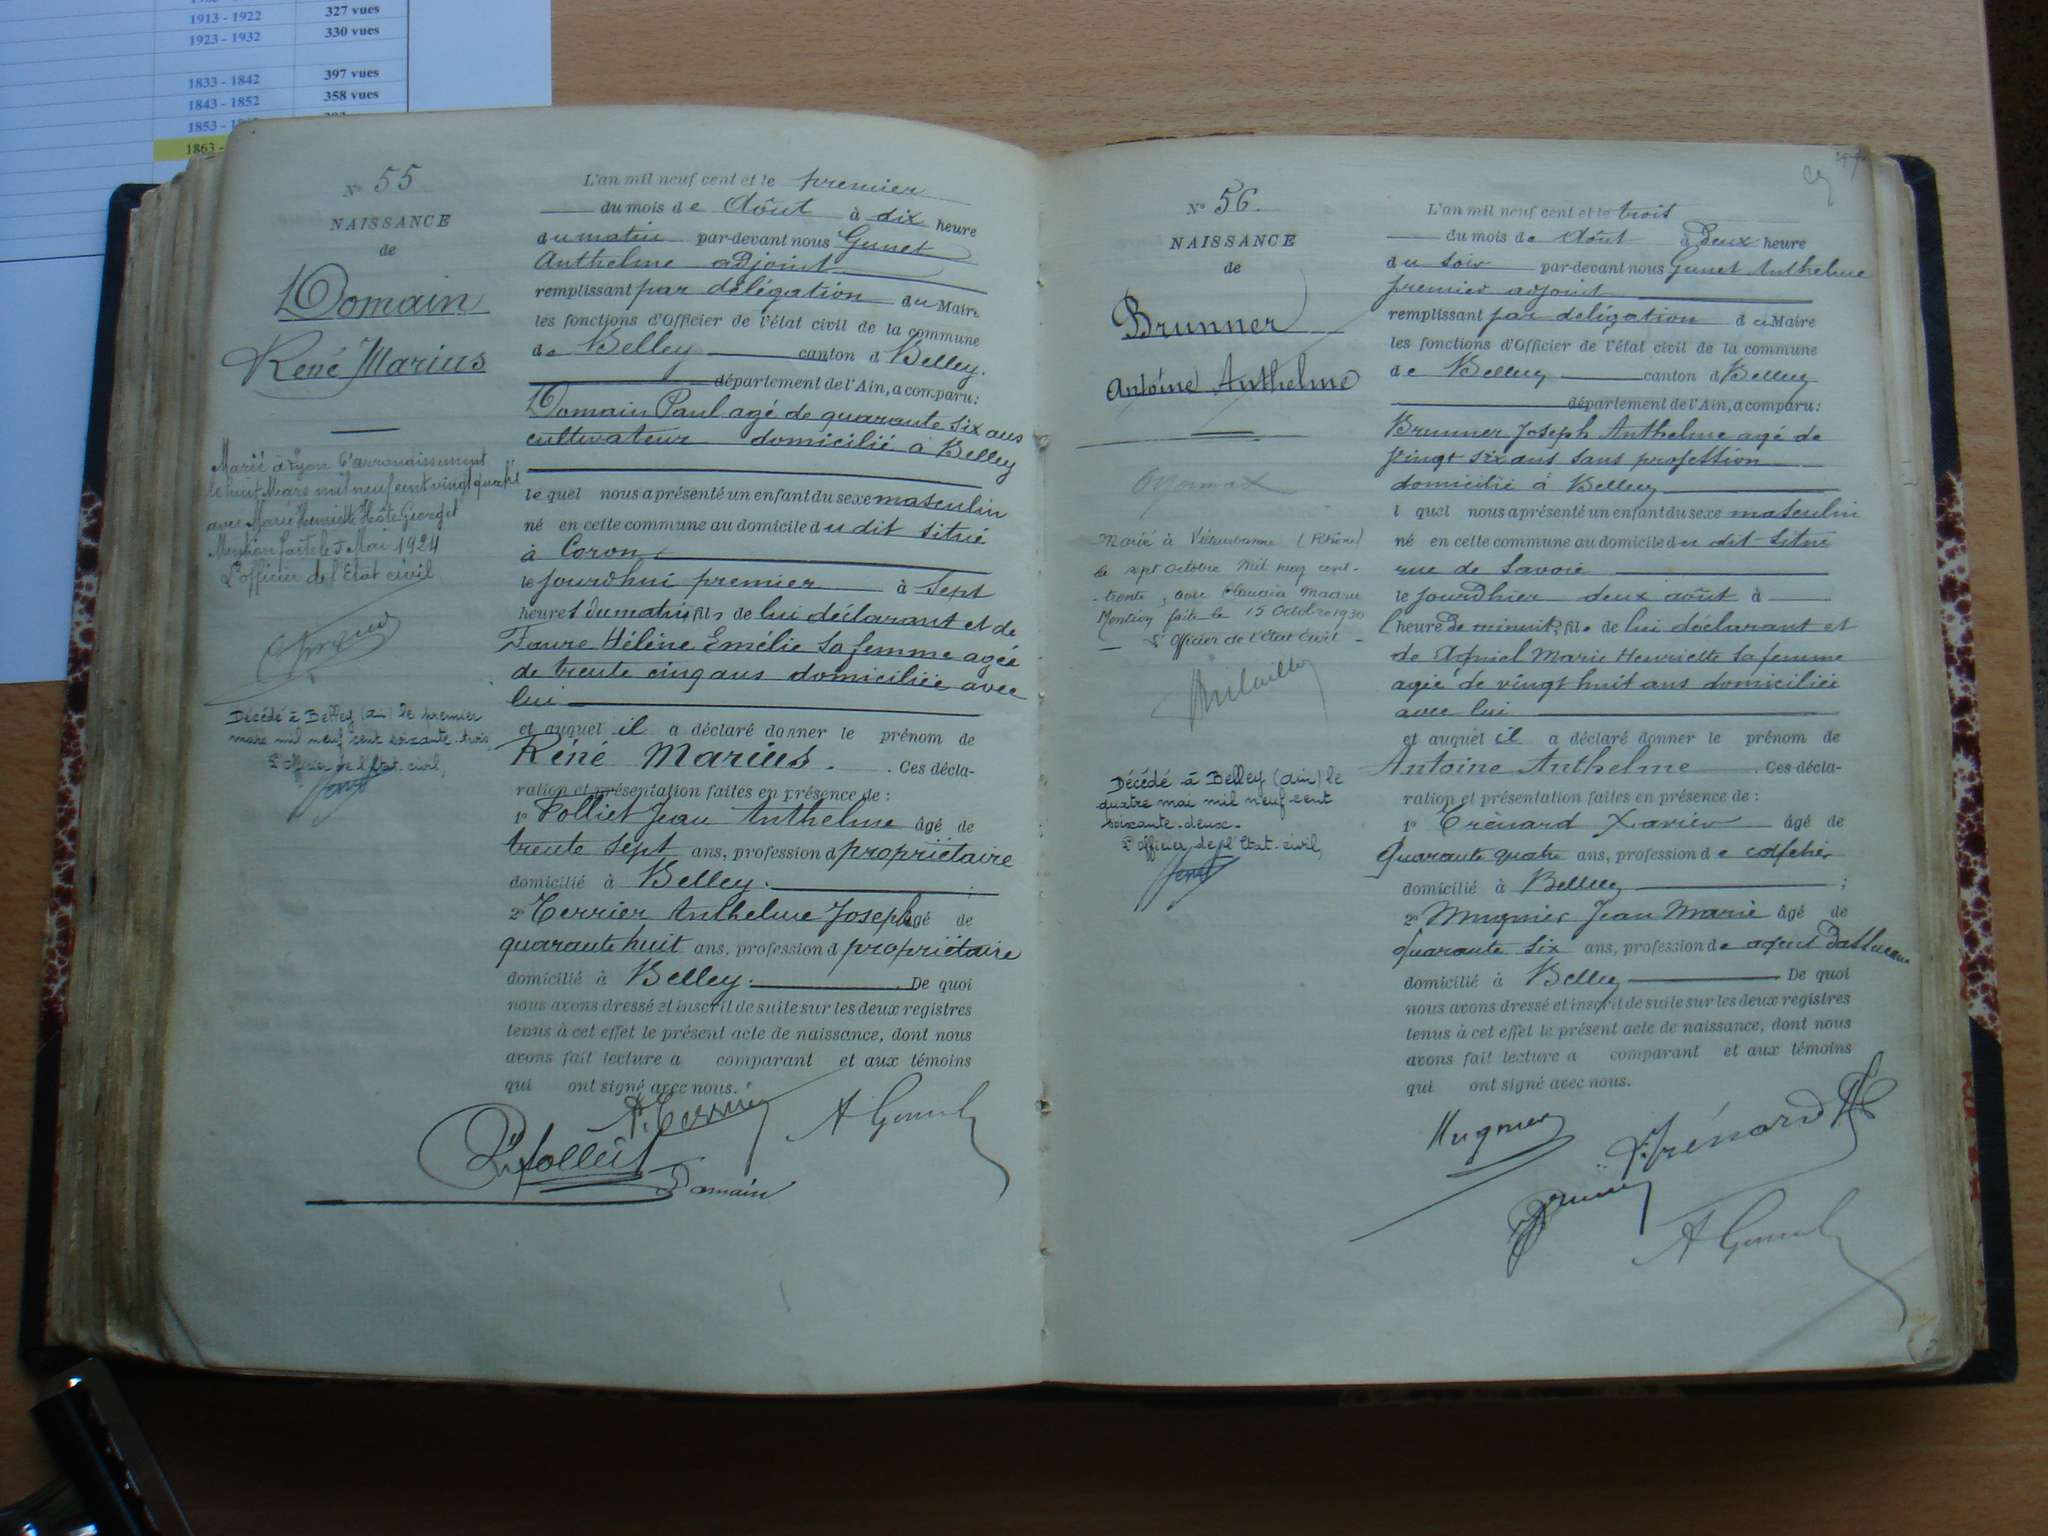 1913 - 1922 327 vues
1923 - 1932 330 vues
1833 - 1842 397 vues
1843 - 1852 358 vues
1853 -
1863 -
N° 55
NAISSANCE
de
Domain
René Marius
Marié à Lyon 6e arrondissement
le huit Mars mil neuf cent vingt quatre
avec Marie Henriette Hôte Georget
Mention faite le 5 Mai 1924
L'officier de l'Etat civil
Décédé à Belley (Ain) le premier
mars mil neuf cent soixante-trois
L'officier de l'Etat-civil,
L'an mil neuf cent et le premier
du mois de Août à dix heure
du matin par-devant nous Gunet
Anthelme adjoint
remplissant par délégation du Maire
les fonctions d'Officier de l'état civil de la commune
de Belley canton d Belley.
département de l'Ain, a comparu:
Domain Paul agé de quarante six ans
cultivateur domicilié à Belley
lequel nous a présenté un enfant du sexe masculin
né en cette commune au domicile du dit situé
à Coron
le jourdhui premier à sept
heures du matin, fils de lui déclarant et de
Faure Hélène Emélie sa femme agée
de trente cinq ans domiciliée avec
lui
et auquel il a déclaré donner le prénom de
Réné Marius. Ces décla-
ration et présentation faites en présence de :
1° Folliet Jean Anthelme âgé de
trente sept ans, profession d propriétaire
domicilié à Belley. ;
2° Terrier Anthelme Joseph âgé de
quarante huit ans, profession d propriétaire
domicilié à Belley. De quoi
nous avons dressé et inscrit de suite sur les deux registres
tenus à cet effet le présent acte de naissance, dont nous
avons fait lecture a comparant et aux témoins
qui ont signé avec nous.
A. Terrier
Folliet
Domain
N° 56.
NAISSANCE
de
Brunner
Antoine Anthelme
Oyonnax
Marié à Villeurbanne (Rhône)
le sept Octobre Mil neuf cent-
-trente, avec Claudia
Mention faite le 15 Octobre 1930
L'Officier de l'Etat Civil -
Décédé à Belley (Ain) le
quatre mai mil neuf-cent
soixante-deux-
L'officier de l'Etat-civil,
L'an mil neuf cent et le trois
du mois de Août à Deux heure
du soir par-devant nous Gunet Anthelme
premier adjoint
remplissant par délégation du Maire
les fonctions d'Officier de l'état civil de la commune
de Belley canton d Belley
département de l'Ain, a comparu:
Brunner Joseph Anthelme agé de
vingt six ans sans profession
domicilié à Belley
l quel nous a présenté un enfant du sexe masculin
né en cette commune au domicile du dit situé
rue de Savoie
le jourdhier deux août à
l'heure de minuit, fils de lui déclarant et
de Marie Henriette sa femme
agée de vingt huit ans domiciliée
avec lui
et auquel il a déclaré donner le prénom de
Antoine Anthelme Ces décla-
ration et présentation faites en présence de :
1° Trénard Xavier âgé de
Quarante quatre ans, profession de
domicilié à Belley ;
2° Mugnier Jean Marie âgé de
Quarante six ans, profession de agent
domicilié à Belley De quoi
nous avons dressé et inscrit de suite sur les deux registres
tenus à cet effet le présent acte de naissance, dont nous
avons fait lecture a comparant et aux témoins
qui ont signé avec nous.
Mugnier
Trénard